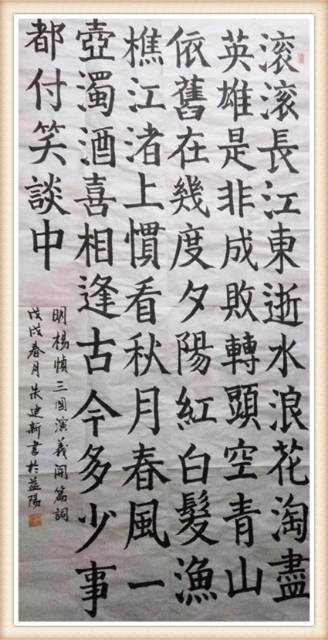 滚滚長江東逝水浪花淘盡
英雄是非成敗轉頭空青山
依舊在幾度夕陽紅白髮漁
樵江渚上慣看秋月春風一
壺濁酒喜相逢古今多少事
都付笑談中
明楊慎三國演義開篇詞
戊戌春月朱迪新書於益陽